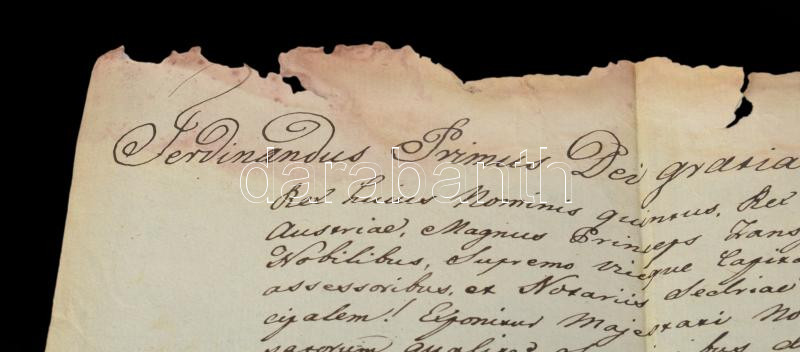 Ferdinandus Primus Dei gratia
Rex huius Nominis quintus, Rex
Austriae, Magnus Princeps Trans
Nobilibus, Supremo viceque Capita
assessoribus, et Notariis Sedriae
cipalem! Exponitur Majestati No
darabanth